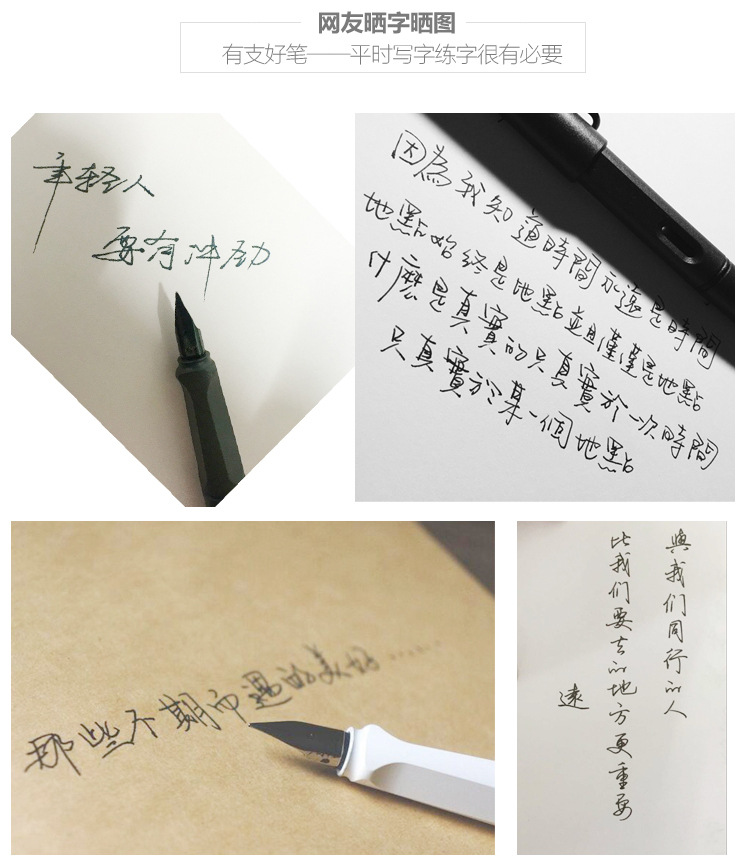 网友晒字晒图
有支好笔——平时写字练字很有必要
年轻人
要有冲劲
因為我知道時間永遠是時間
地點始終是地點並且僅僅是地點
什麼是真實的只真實於一次時間
只真實於某一個地點
那些不期而遇的美好……
與我们同行的人
比我们要去的地方更重要
遠